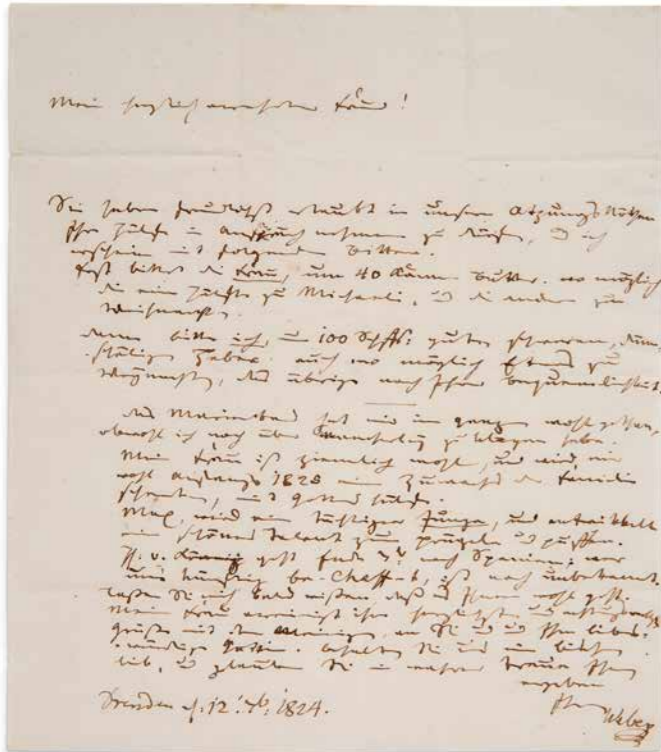 Mein herzlich verehrter Freund!
Sie haben freundlichst erlaubt in unsern Atzungs Nöthen
Ihre Hülfe in Anspruch nehmen zu dürfen, und ich
erscheine mit folgenden Bitten.
Erst bittet die Frau, um 40 Kannen Butter. wo möglich
die eine Hälfte zu Michaeli, und die andere zu
Weihnachten.
dann bitte ich, um 100 Schffl: guten schweren, dünn-
schäligen Haber. auch wo möglich Etwas zu
Weihnachten, das übrige nach Ihrer Bequemlichkeit.
das Marienbad hat mir im ganzen wohl gethan,
obwohl ich noch über Mancherley zu klagen habe.
Meine Frau ist ziemlich wohl, und wird mir
wohl anfangs 1825 einen Zuwachs der Familie
schenken, mit Gottes Hülfe.
Max, wird ein tüchtiger Junge, und entwikkelt
ein schönes Talent zum prügeln und puffen.
H: v. geht Ende nach Spanien; wer
uns künftig ist noch unbekannt.
Laßen Sie mich bald wißen daß es Ihnen wohl geht.
Meine Frau vereinigt ihre herzlichsten und
Grüße mit den Meinigen, an Sie und Ihre liebens-
würdige Gattin. behalten Sie uns ein bischen
lieb, und glauben Sie in wahrer Treue Ihren
ergebenen
Weber
Dresden d: 12: 7b: 1824.